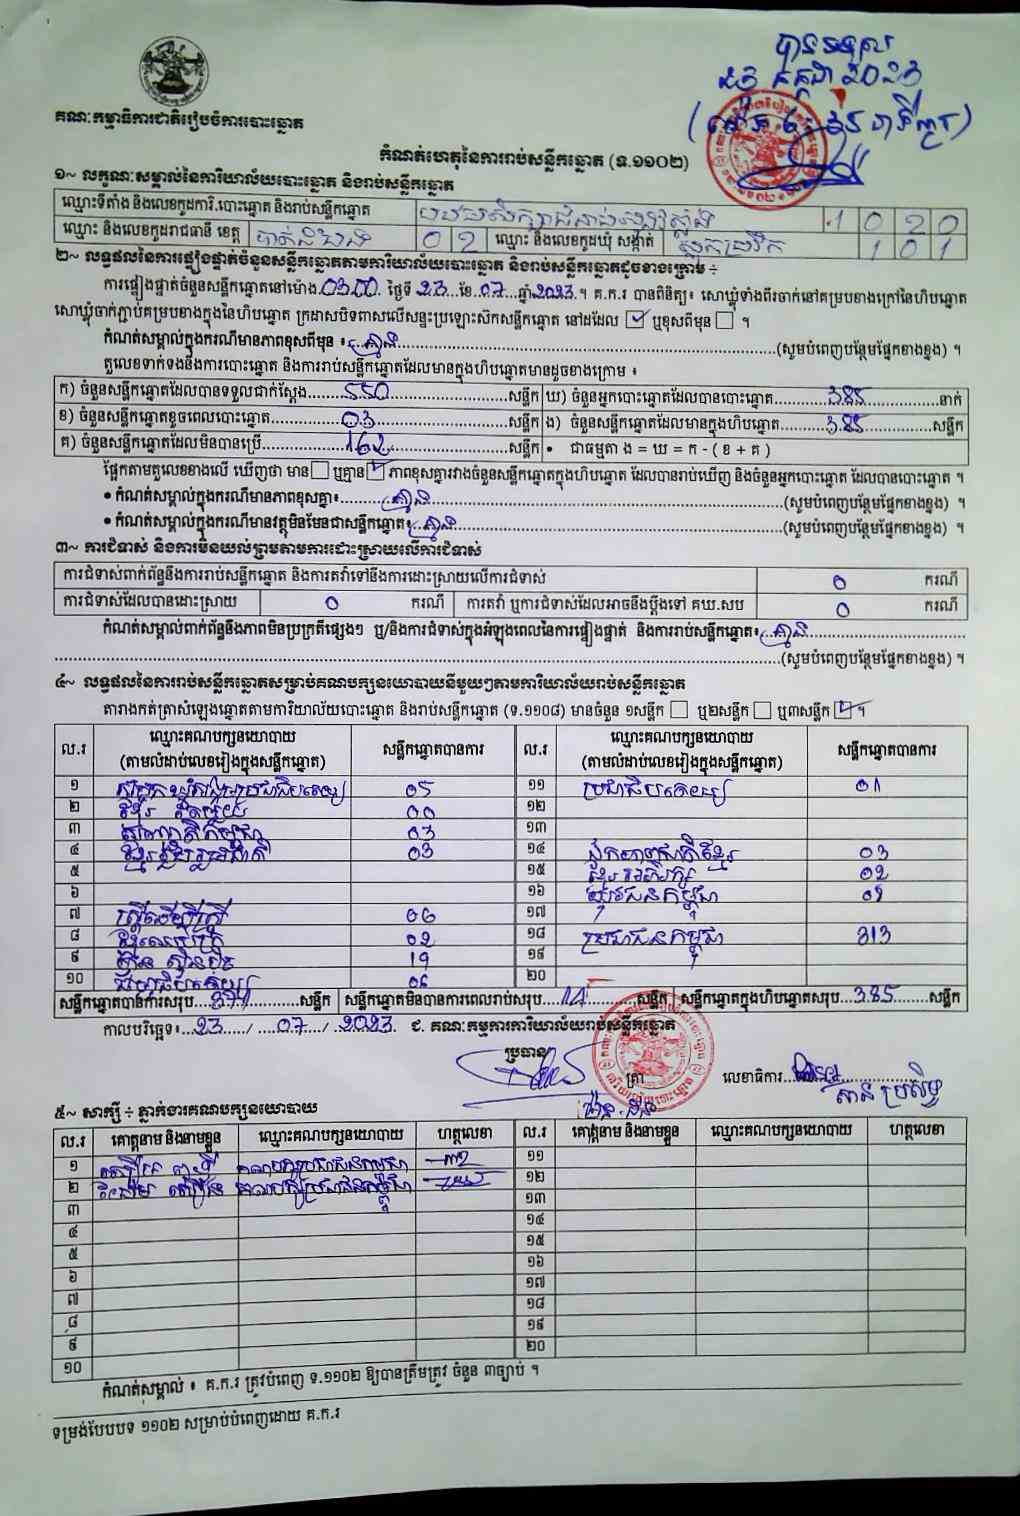 បានទទួល
២៣ កក្កដា ២០២៣
គណៈកម្មាធិការជាតិរៀបចំការបោះឆ្នោត
កំណត់ហេតុនៃការរាប់សន្លឹកឆ្នោត (ទ.១១០២)
១~ លក្ខណៈសម្គាល់នៃការិយាល័យបោះឆ្នោត និងរាប់សន្លឹកឆ្នោត
ឈ្មោះទីតាំង និងលេខកូដការិ.បោះឆ្នោត និងរាប់សន្លឹកឆ្នោត 1 0 2 0
ឈ្មោះ និងលេខកូដរាជធានី ខេត្ត បាត់ដំបង 0 2 ឈ្មោះ និងលេខកូដឃុំ សង្កាត់ 1 0 1
២~ លទ្ធផលនៃការផ្ទៀងផ្ទាត់ចំនួនសន្លឹកឆ្នោតតាមការិយាល័យបោះឆ្នោត និងរាប់សន្លឹកឆ្នោតដូចខាងក្រោម ÷
ការផ្ទៀងផ្ទាត់ចំនួនសន្លឹកឆ្នោតនៅម៉ោង 0300 ថ្ងៃទី 23 ខែ 07 ឆ្នាំ 2023 ។ គ.ក.រ បានពិនិត្យ៖ សោឃ្មុំទាំងពីរចាក់នៅគម្របខាងក្រៅនៃហិបឆ្នោត
សោឃ្មុំចាក់ភ្ជាប់គម្របខាងក្នុងនៃហិបឆ្នោត ក្រដាសបិទពាសលើសន្ទះប្រឡោះសិកសន្លឹកឆ្នោត នៅដដែល ☑ ឬខុសពីមុន ☐ ។
កំណត់សម្គាល់ក្នុងករណីមានភាពខុសពីមុន ៖ គ្មាន (សូមបំពេញបន្ថែមផ្នែកខាងខ្នង) ។
តួលេខទាក់ទងនឹងការបោះឆ្នោត និងការរាប់សន្លឹកឆ្នោតដែលមានក្នុងហិបឆ្នោតមានដូចខាងក្រោម ៖
ក) ចំនួនសន្លឹកឆ្នោតដែលបានទទួលជាក់ស្តែង 550 សន្លឹក ឃ) ចំនួនអ្នកបោះឆ្នោតដែលបានបោះឆ្នោត 385 នាក់
ខ) ចំនួនសន្លឹកឆ្នោតខូចពេលបោះឆ្នោត 03 សន្លឹក ង) ចំនួនសន្លឹកឆ្នោតដែលមានក្នុងហិបឆ្នោត 385 សន្លឹក
គ) ចំនួនសន្លឹកឆ្នោតដែលមិនបានប្រើ 162 សន្លឹក • ជាធម្មតា ង = ឃ = ក - ( ខ + គ )
ផ្អែកតាមតួលេខខាងលើ ឃើញថា មាន ☐ ឬគ្មាន ☑ ភាពខុសគ្នារវាងចំនួនសន្លឹកឆ្នោតក្នុងហិបឆ្នោត ដែលបានរាប់ឃើញ និងចំនួនអ្នកបោះឆ្នោត ដែលបានបោះឆ្នោត ។
• កំណត់សម្គាល់ក្នុងករណីមានភាពខុសគ្នា៖ គ្មាន (សូមបំពេញបន្ថែមផ្នែកខាងខ្នង) ។
• កំណត់សម្គាល់ក្នុងករណីមានវត្ថុមិនមែនជាសន្លឹកឆ្នោត៖ គ្មាន (សូមបំពេញបន្ថែមផ្នែកខាងខ្នង) ។
៣~ ការជំទាស់ និងការមិនយល់ព្រមតាមការដោះស្រាយលើការជំទាស់
ការជំទាស់ពាក់ព័ន្ធនឹងការរាប់សន្លឹកឆ្នោត និងការតវ៉ាទៅនឹងការដោះស្រាយលើការជំទាស់ 0 ករណី
ការជំទាស់ដែលបានដោះស្រាយ 0 ករណី ការតវ៉ា ឬការជំទាស់ដែលអាចនឹងប្តឹងទៅ គឃ.សប 0 ករណី
កំណត់សម្គាល់ពាក់ព័ន្ធនឹងភាពមិនប្រក្រតីផ្សេងៗ ឬ/និងការជំទាស់ក្នុងអំឡុងពេលនៃការផ្ទៀងផ្ទាត់ និងការរាប់សន្លឹកឆ្នោត៖ គ្មាន
(សូមបំពេញបន្ថែមផ្នែកខាងខ្នង) ។
៤~ លទ្ធផលនៃការរាប់សន្លឹកឆ្នោតសម្រាប់គណបក្សនយោបាយនីមួយៗតាមការិយាល័យរាប់សន្លឹកឆ្នោត
តារាងកត់ត្រាសំឡេងឆ្នោតតាមការិយាល័យបោះឆ្នោត និងរាប់សន្លឹកឆ្នោត (ទ.១១០៨) មានចំនួន ១សន្លឹក ☐ ឬ២សន្លឹក ☐ ឬ៣សន្លឹក ☑ ។
ល.រ ឈ្មោះគណបក្សនយោបាយ (តាមលំដាប់លេខរៀងក្នុងសន្លឹកឆ្នោត) សន្លឹកឆ្នោតបានការ ល.រ ឈ្មោះគណបក្សនយោបាយ (តាមលំដាប់លេខរៀងក្នុងសន្លឹកឆ្នោត) សន្លឹកឆ្នោតបានការ
១ 05 ១១ ប្រជាធិបតេយ្យ 01
២ 00 ១២
៣ 03 ១៣
៤ 03 ១៤ 03
៥ ១៥ 02
៦ ១៦ យុវជនកម្ពុជា
៧ ស្ត្រីដើម្បីស្ត្រី 06 ១៧
៨ 02 ១៨ ប្រជាជនកម្ពុជា 313
៩ 19 ១៩
១០ ២០
សន្លឹកឆ្នោតបានការសរុប 371 សន្លឹក សន្លឹកឆ្នោតមិនបានការពេលរាប់សរុប 14 សន្លឹក សន្លឹកឆ្នោតក្នុងហិបឆ្នោតសរុប 385 សន្លឹក
កាលបរិច្ឆេទ៖ 23 / 07 / 2023 ជ. គណៈកម្មការការិយាល័យរាប់សន្លឹកឆ្នោត
ប្រធាន
ត្រា លេខាធិការ
៥~ សាក្សី ÷ ភ្នាក់ងារគណបក្សនយោបាយ
ល.រ គោត្តនាម និងនាមខ្លួន ឈ្មោះគណបក្សនយោបាយ ហត្ថលេខា ល.រ គោត្តនាម និងនាមខ្លួន ឈ្មោះគណបក្សនយោបាយ ហត្ថលេខា
១ គណបក្សប្រជាជនកម្ពុជា ១១
២ គណបក្សប្រជាជនកម្ពុជា ១២
៣ ១៣
៤ ១៤
៥ ១៥
៦ ១៦
៧ ១៧
៨ ១៨
៩ ១៩
១០ ២០
កំណត់សម្គាល់ ៖ គ.ក.រ ត្រូវបំពេញ ទ.១១០២ ឱ្យបានត្រឹមត្រូវ ចំនួន ៣ច្បាប់ ។
ទម្រង់បែបបទ ១១០២ សម្រាប់បំពេញដោយ គ.ក.រ